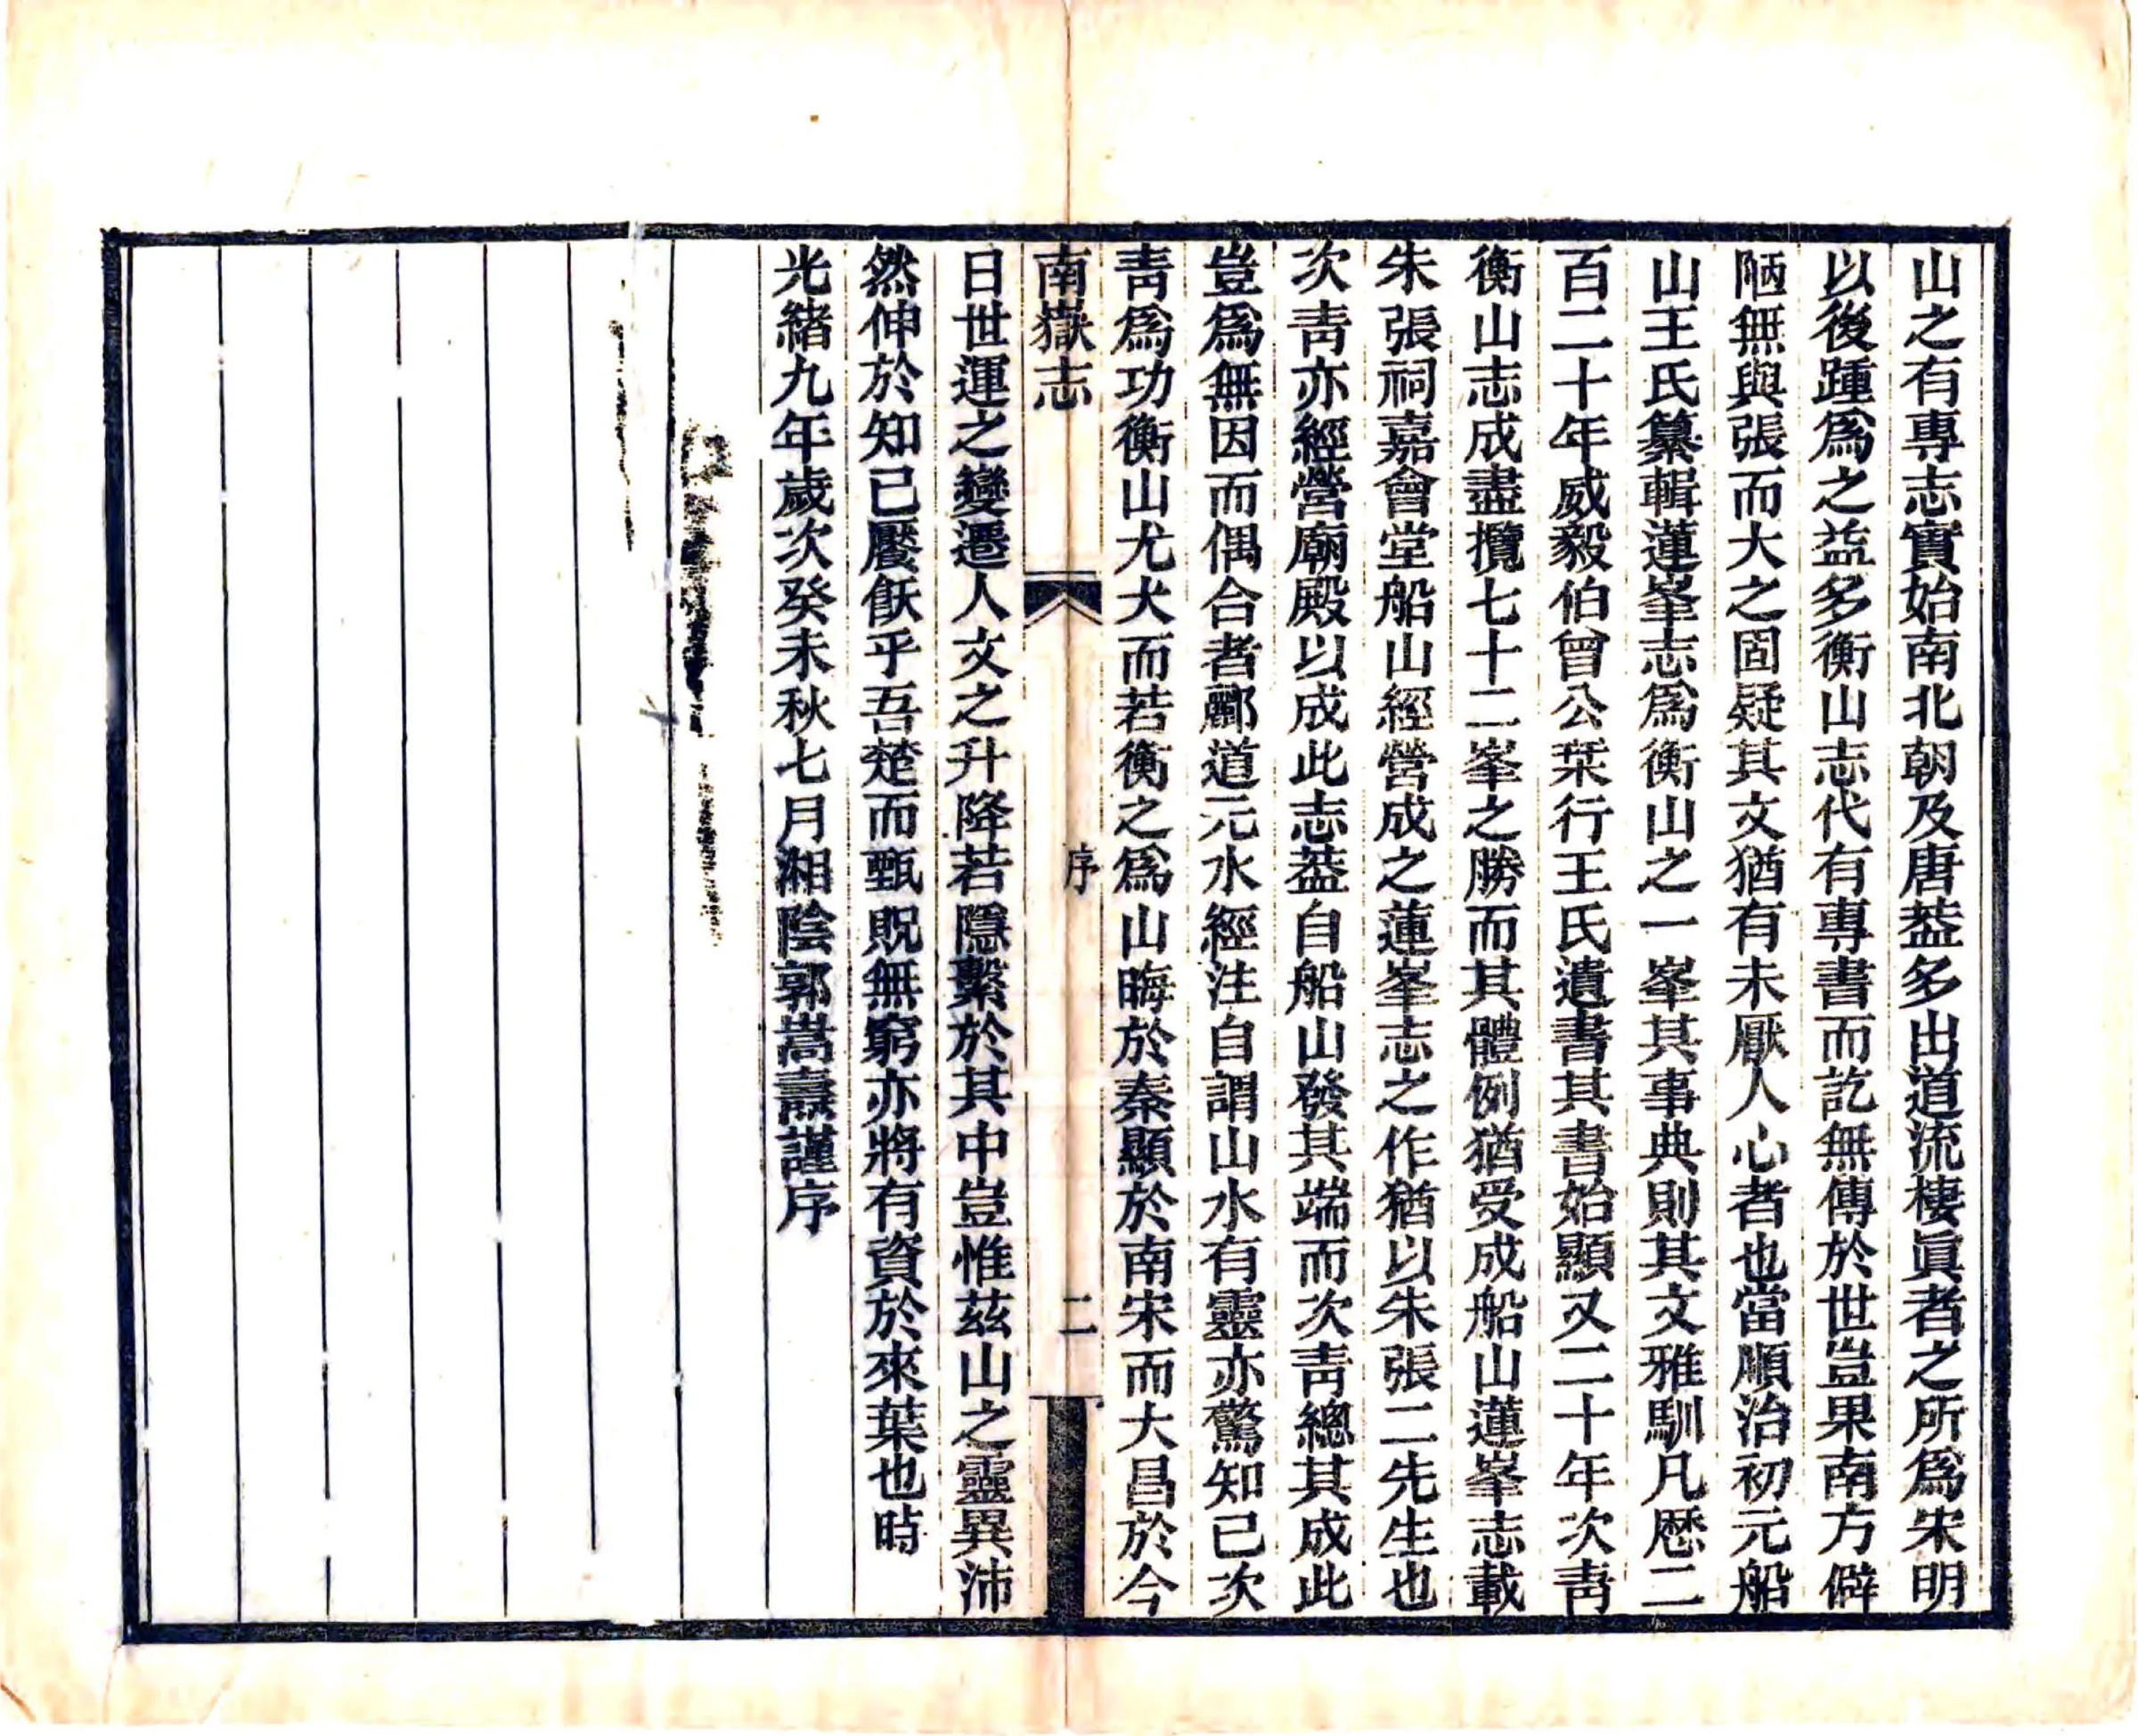 山之有專志實始南北朝及唐葢多出道流棲眞者之所爲宋明
以後踵爲之益多衡山志代有專書而訖無傳於世豈果南方僻
陋無與張而大之固疑其文猶有未厭人心者也當順治初元船
山王氏纂輯蓮峯志爲衡山之一峯其事典則其文雅馴凡歷二
百二十年威毅伯曾公栞行王氏遺書其書始顯又二十年次靑
衡山志成盡攬七十二峯之勝而其體例猶受成船山蓮峯志載
朱張祠嘉會堂船山經營成之蓮峯志之作猶以朱張二先生也
次靑亦經營廟殿以成此志葢自船山發其端而次靑總其成此
豈爲無因而偶合者酈道元水經注自謂山水有靈亦驚知已次
靑爲功衡山尤大而若衡之爲山晦於秦顯於南宋而大昌於今
南嶽志
序
二
日世運之變遷人文之升降若隱繫於其中豈惟茲山之靈異沛
然伸於知已饜飫乎吾楚而甄貺無窮亦將有資於來葉也時
光緒九年歲次癸未秋七月湘陰郭嵩燾謹序